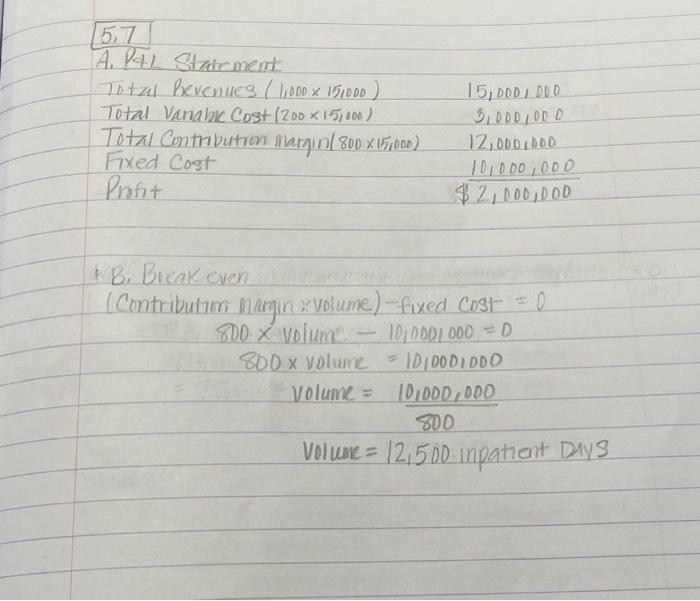 5.7
A. P&L Statement
Total Revenues (1,000 x 15,000) 15,000,000
Total Variable Cost (200 x 15,000) 3,000,000
Total Contribution Margin (800 x 15,000) 12,000,000
Fixed Cost 10,000,000
Profit $2,000,000
B. Break even
(Contribution Margin x volume) - fixed cost = 0
800 x volume - 10,000,000 = 0
800 x volume = 10,000,000
volume = 10,000,000
800
Volume = 12,500 inpatient DAYS